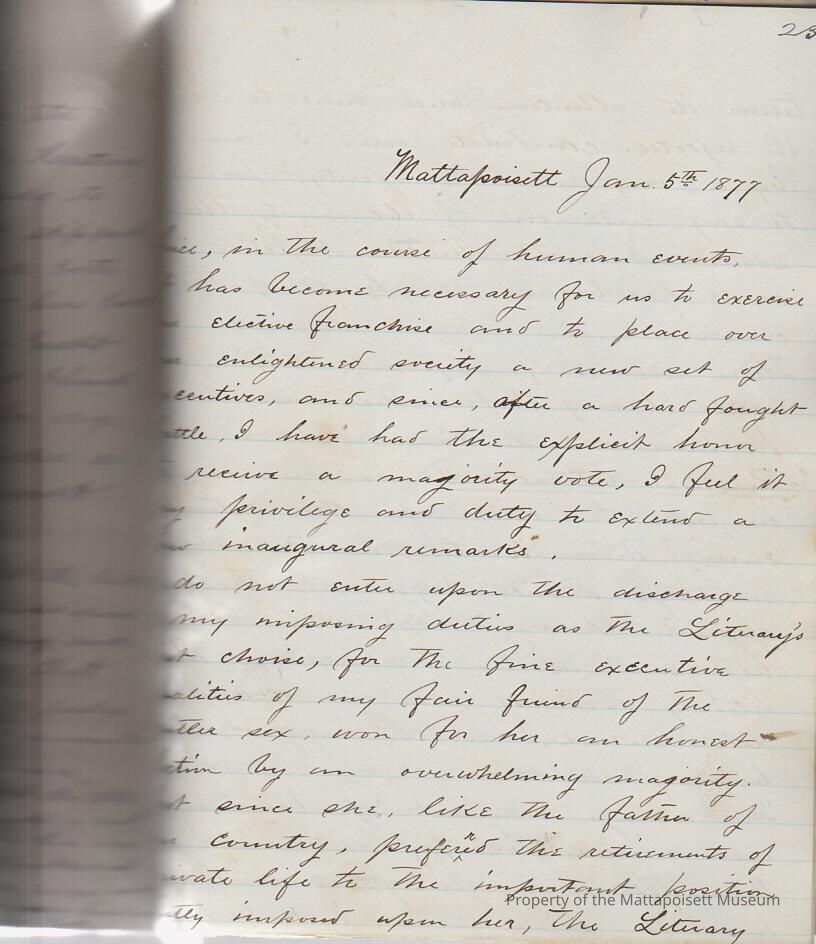 23
Mattapoisett Jan. 5th 1877
in the course of human events,
has become necessary for us to exercise
elective franchise and to place over
enlightened society a new set of
ecutives, and since, after a hard fought
ttle, I have had the explicit honor
receive a majority vote, I feel it
privilege and duty to extend a
inaugural remarks.
do not enter upon the discharge
my imposing duties as the Literary's
choise, for the fine executive
alities of my fair friend of the
tler sex, won for her an honest
ction by an overwhelming magority.
since she, like the father of
country, preferred the retirements of
ivate life to the important position
tly imposed upon her, the Literary
Property of the Mattapoisett Museum